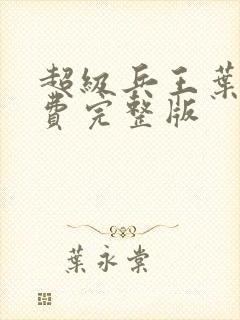 超級兵王葉
費完整版
葉永棠